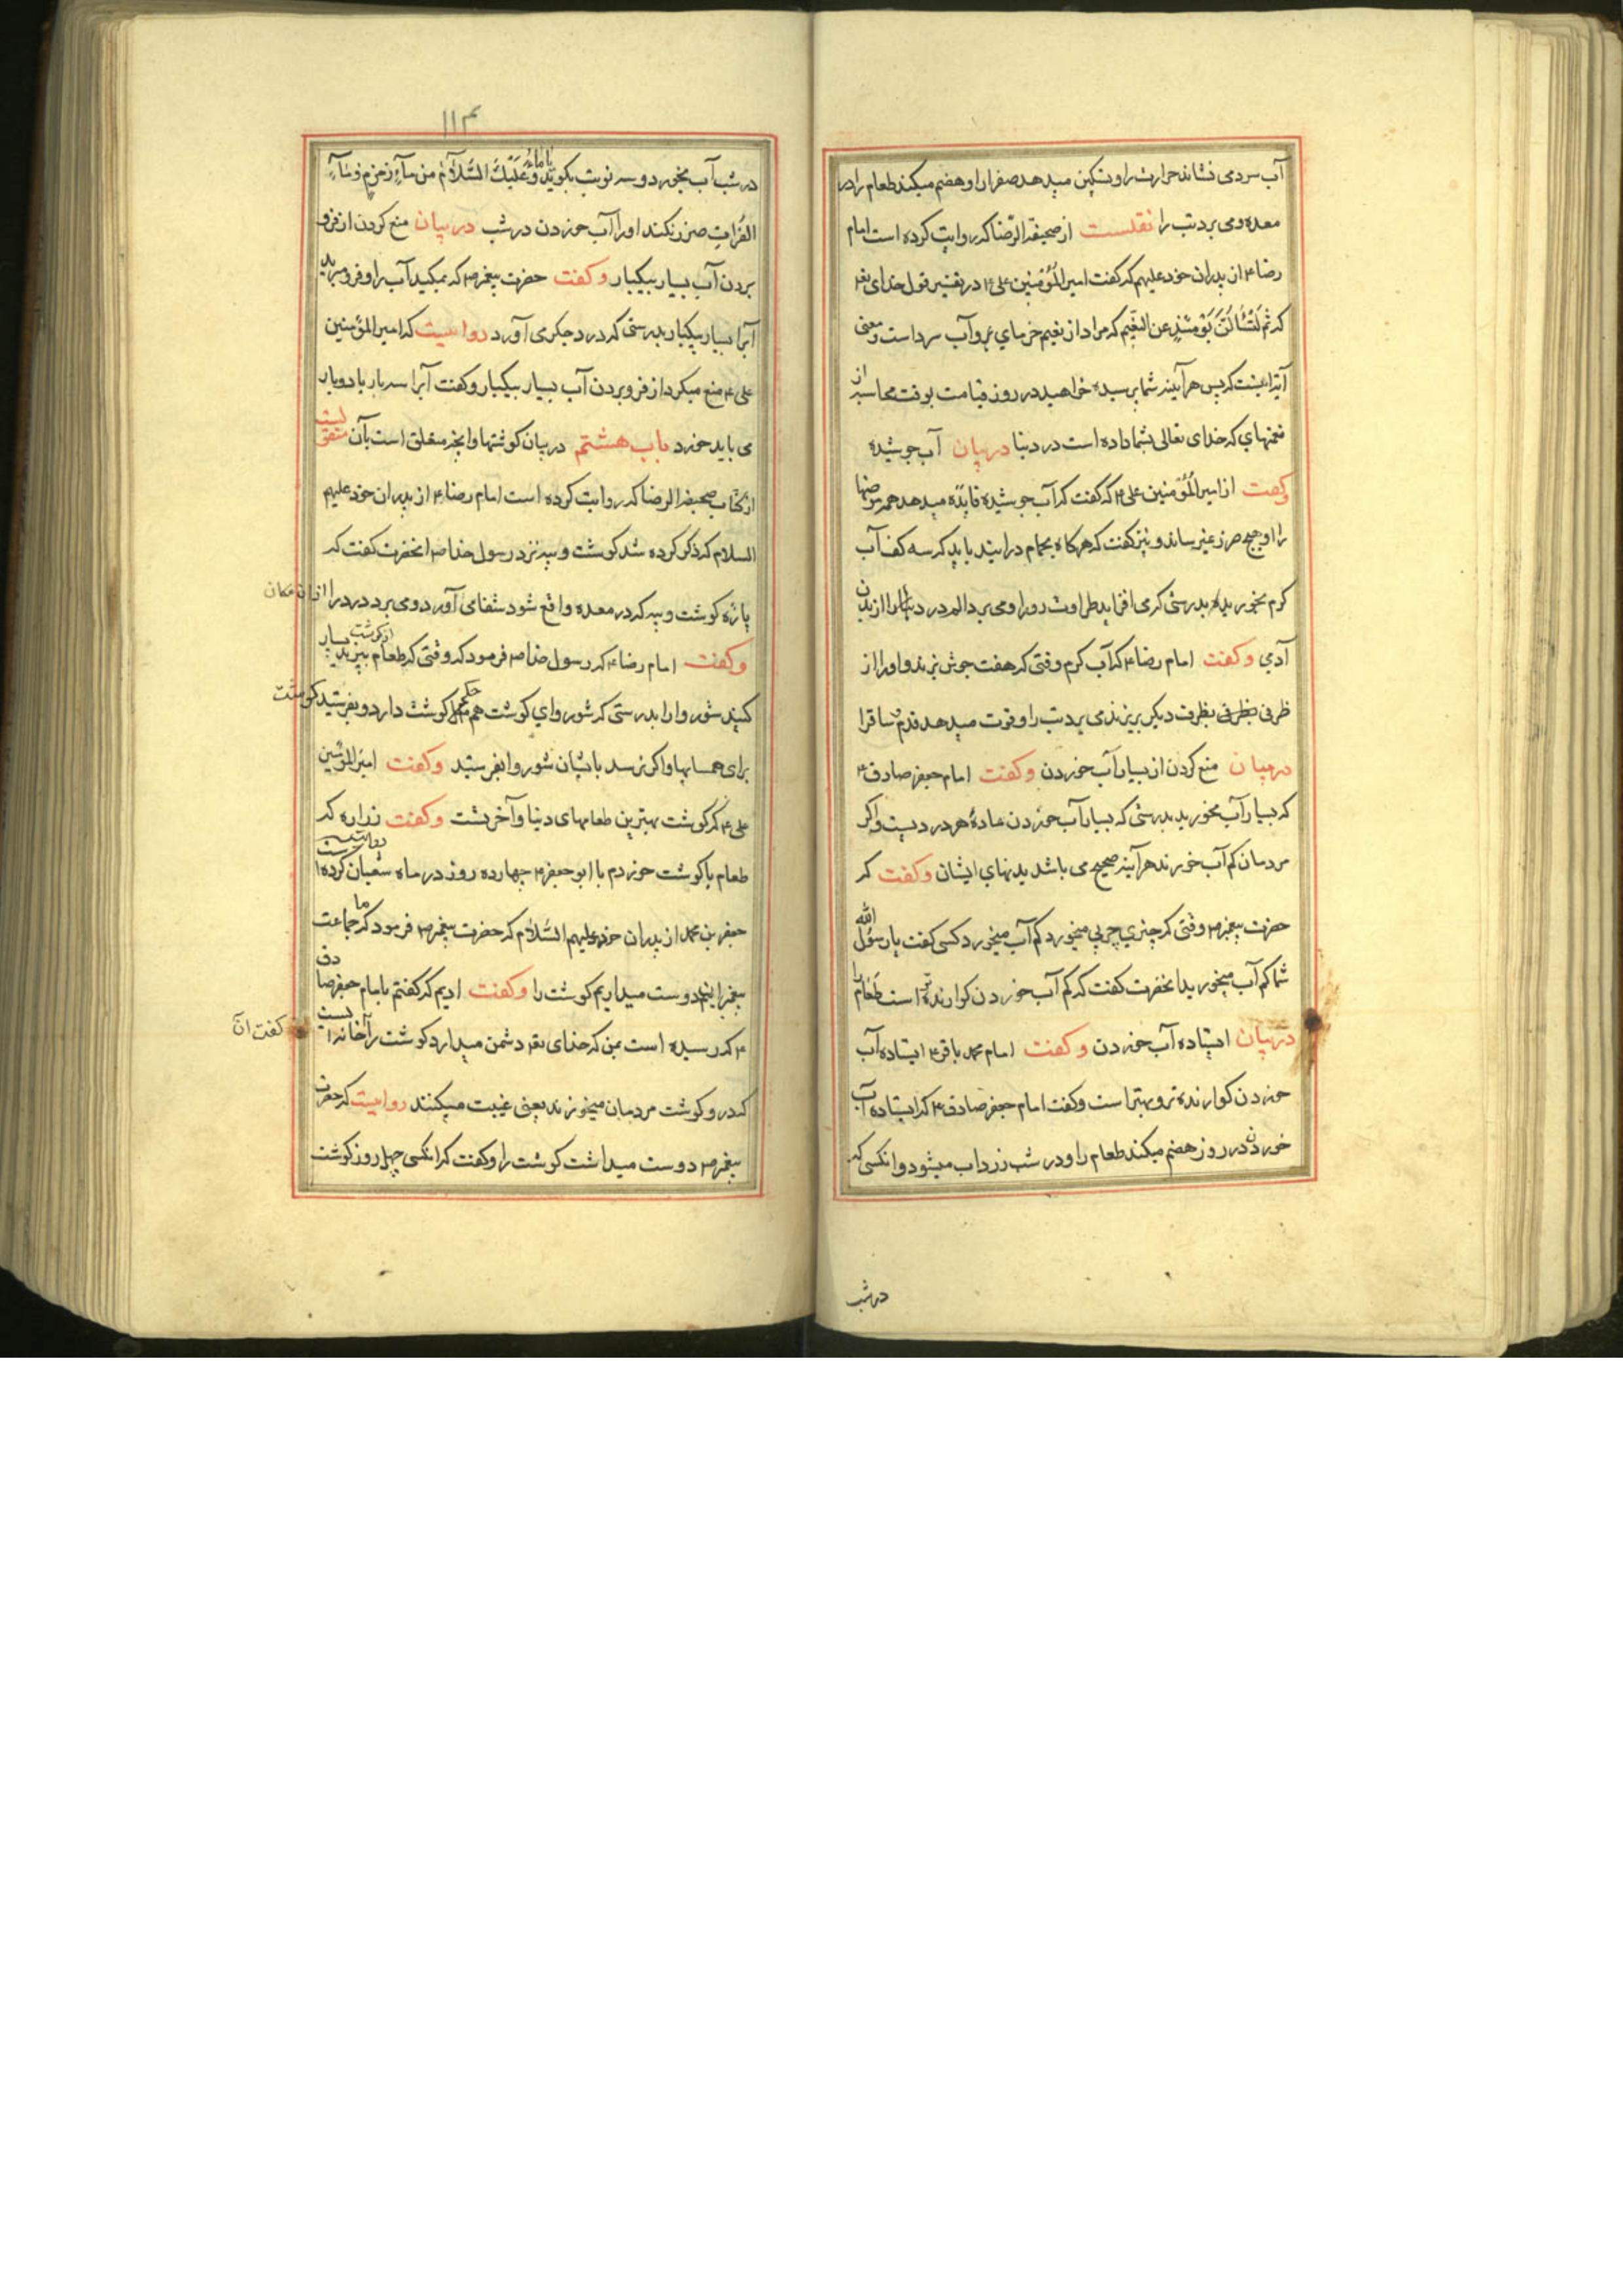 آب سرد می نشاند حرارت را و تسکین میدهد صفرا را و هضم میکند طعام را در
معده و می برد تب را نقلست از صحیفة الرضا که روایت کرده است امام
رضا ء از پدران خود علیهم که گفت امیر المؤمنین علی ء در تفسیر قول خدای تعه
که ثم لتسئلن یومئذ عن النعیم که مراد از نعیم خرمای تر و آب سرد است و معنی
آیه اینست که پس هر آینه شما پرسیده خواهید در روز قیامت بوقت محاسبه از
نعمتهای که خدای تعالی بشما داده است در دنیا در بیان آب جوشیده
وکفت از امیر المؤمنین علی ء که گفت که آب جوشیده فایده میدهد همه مرضها
را و هیچ ضرر نمیرساند و نیز کفت که هرکاه بحمام درایید باید که سه کف آب
کرم بخورید بدرستی که می افزاید طراوت رو را و می برد الم و درد را از بدن
آدمی وکفت امام رضا ء که آب کرم وقتی که هفت جوش بزند و او را از
ظرفی بظرف دیکر بریزند می برد تب را و قوت میدهد قدم و ساق را
در بیان منع کردن از بسیار آب خوردن وکفت امام جعفر صادق ء
که بسیار آب مخورید بدرستی که بسیار آب خوردن مادهٔ هر دردیست و اکر
مردمان کم آب خورند هر آینه صحیح می باشد بدنهای ایشان وکفت که
حضرت پیغمبر ص وقتی که چیزی چربی میخورد کم آب میخورد کسی کفت یا رسول الله
شما کم آب میخورید انحضرت کفت که کم آب خوردن کوارنده تر است طعام را
در بیان ایستاده آب خوردن وکفت امام محمد باقر ء ایستاده آب
خوردن کوارنده تر و بهتر است وکفت امام جعفر صادق ء که ایستاده آب
خوردن در روز هضم میکند طعام را و در شب زرداب میشود و انکسی که
در شب
۱۱۴
در شب آب بخورد و سه نوبت بکوید یا ماء وعلیک السلام من ماء زمزم و ماء
الفرات ضرر نکند او را آب خوردن در شب در بیان منع کردن از فرو
بردن آب بسیار بیکبار وکفت حضرت پیغمبر ص که بمکید آب را و فرو مبرید
آبرا بسیار بیکبار بدرستی که درد جکر می آورد روایتست که امیر المؤمنین
علی ء منع میکرد از فرو بردن آب بسیار بیکبار وکفت آبرا سه بار یا دو بار
می باید خورد باب هشتم در بیان کوشتها و انچه متعلق است بآن منقولست
از کتاب صحیفة الرضا که روایت کرده است امام رضا ء از پدران خود علیهم
السلام که ذکر کرده شد کوشت و پیه نزد رسول خدا ص انحضرت کفت که
پاره کوشت و پیه که در معده واقع شود شفا می آورد و می برد درد را از ان مکان
وکفت امام رضا ء که رسول خدا ص فرمود که وقتی که طعام بپزید از کوشت بسیار
کنید شوروا را بدرستی که شوروای کوشت هم حکم کوشت دارد و بفرستید کوشت
برای همسایها و اکر نرسد بایشان شوروا بفرستید وکفت امیر المؤمنین
علی ء که کوشت بهترین طعامهای دنیا و آخرتست وکفت زراره که
طعام با کوشت خوردم با ابو جعفر ء چهارده روز در ماه شعبان روایت کرده است
جعفر بن محمد از پدران خود علیهم السلام که حضرت پیغمبر ص فرمود که ما جماعت
پیغمبرانیم دوست میداریم کوشت را وکفت ادیم که کفتم بامام جعفر صادق
ء که رسیده است بمن که خدای تعه دشمن میدارد کوشت را کفت ان خانه ایست
که در و کوشت مردمان میخورند یعنی غیبت میکنند روایتست که حضرت
پیغمبر ص دوست میداشت کوشت را وکفت که انکسی چهل روز کوشت